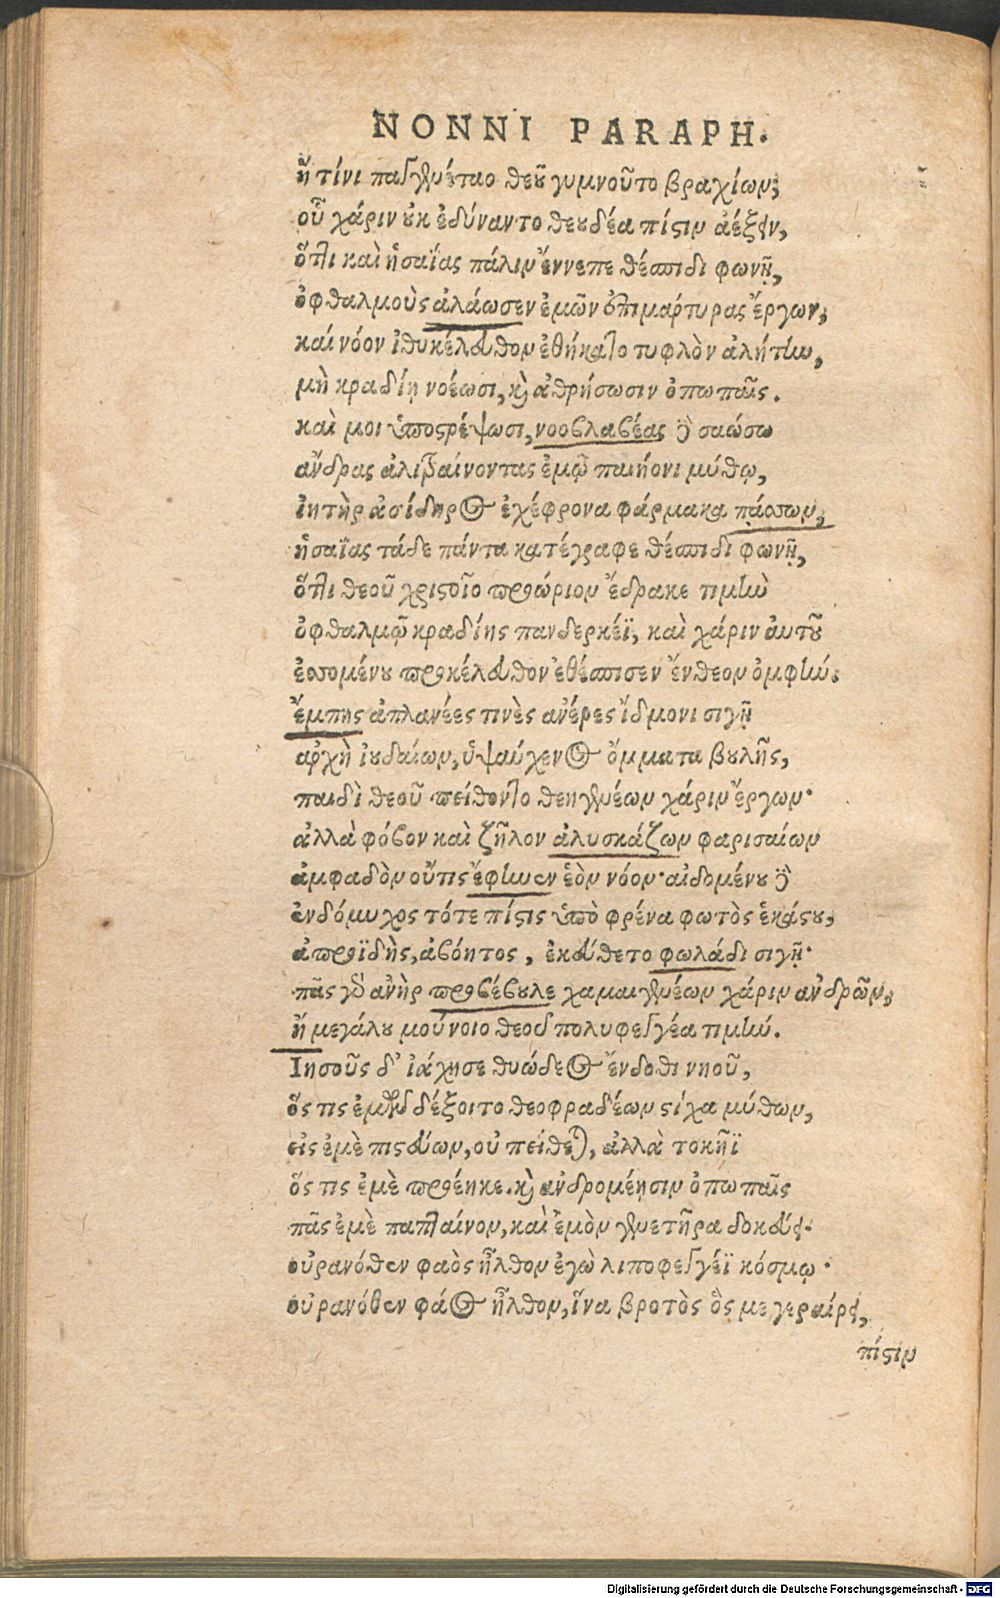 NONNI PARAPH.
ἢ τίνι παγγενέταο θεοῦ γυμνοῦτο βραχίων;
οὗ χάριν οὐκ ἐδύναντο θεουδέα πίστιν ἀέξειν,
ὅττι καὶ ἡσαΐας πάλιν ἔννεπε θέσπιδι φωνῇ,
ὀφθαλμοὺς ἀλάωσεν ἐμῶν ἐπιμάρτυρας ἔργων;
καί νόον ἰθυκέλευθον ἐθήκατο τυφλὸν ἀλήτην,
μὴ κραδίῃ νοέωσι, καὶ ἀθρήσωσιν ὀπωπαῖς.
καὶ μοι ὑποστρέψωσι, νοοβλαβέας δὲ σαώσω
ἄνδρας ἀλιβαίνοντας ἐμῷ παιήονι μύθῳ,
ἰητὴρ ἀσίδηρος ἐχέφρονα φάρμακα πάσσων;
ἡσαΐας τάδε πάντα κατέγραφε θέσπιδι φωνῇ,
ὅττι θεοῦ χριστοῖο προώριον ἔδρακε τιμὴν
ὀφθαλμῷ κραδίης πανδερκέϊ, καὶ χάριν αὐτοῦ
ἐσσομένου προκέλευθον ἐθέσπισεν ἔνθεον ὀμφήν;
ἔμπης ἀπλανέες τινὲς ἀνέρες ἴδμονι σιγῇ
ἀρχὴ ἰουδαίων, ὑψαύχενος ὄμματα βουλῆς,
παιδὶ θεοῦ πείθοντο θεηγενέων χάριν ἔργων·
ἀλλὰ φόβον καὶ ζῆλον ἀλυσκάζων φαρισαίων
ἀμφαδὸν οὔτις ἔφηνεν ἑὸν νόον· αἰδομένου δὲ
ἐνδόμυχος τότε πίστις ὑπὸ φρένα φωτὸς ἑκάστου,
ἀπροϊδὴς, ἀβόητος, ἐκεύθετο φωλάδι σιγῇ·
πᾶς γὰρ ἀνὴρ προβέβουλε χαμαιγενέων χάριν ἀνδρῶν,
ἢ μεγάλου μούνοιο θεοῦ πολυφεγγέα τιμήν.
Ιησοῦς δ' ἰάχησε θυώδεος ἔνδοθι νηοῦ,
ὅς τις ἐμεῦ δέξοιτο θεοφραδέων στίχα μύθων,
εἰς ἐμὲ πιστεύων, οὐ πείθεται, ἀλλὰ τοκῆϊ
ὅς τις ἐμὲ προέηκε. καὶ ἀνδρομέῃσιν ὀπωπαῖς
πᾶς ἐμὲ παπταίνον, καὶ ἐμὸν γενετῆρα δοκεύει.
οὐρανόθεν φαὸς ἦλθον ἐγὼ λιποφεγγέϊ κόσμῳ·
οὐρανόθεν φάος ἦλθον, ἵνα βροτὸς ὅς με γεραίρει,
πίστιν
Digitalisierung gefördert durch die Deutsche Forschungsgemeinschaft - DFG